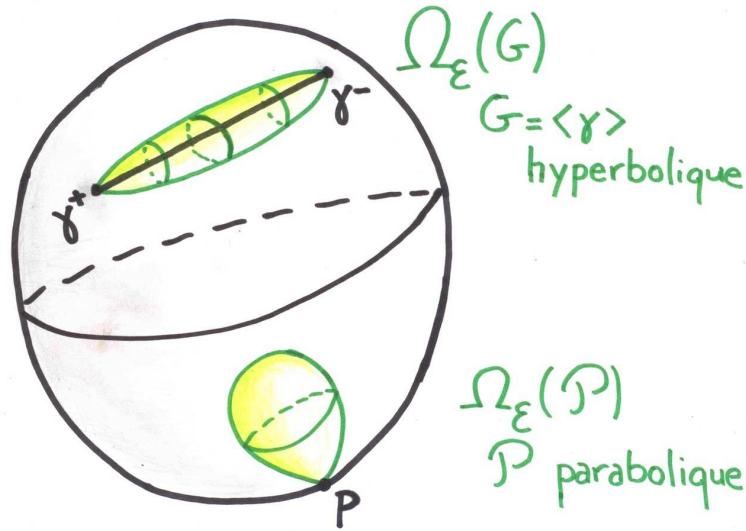 Ω_ε(G)
γ⁻
G = <γ>
hyperbolique
γ⁺
Ω_ε(P)
P parabolique
P